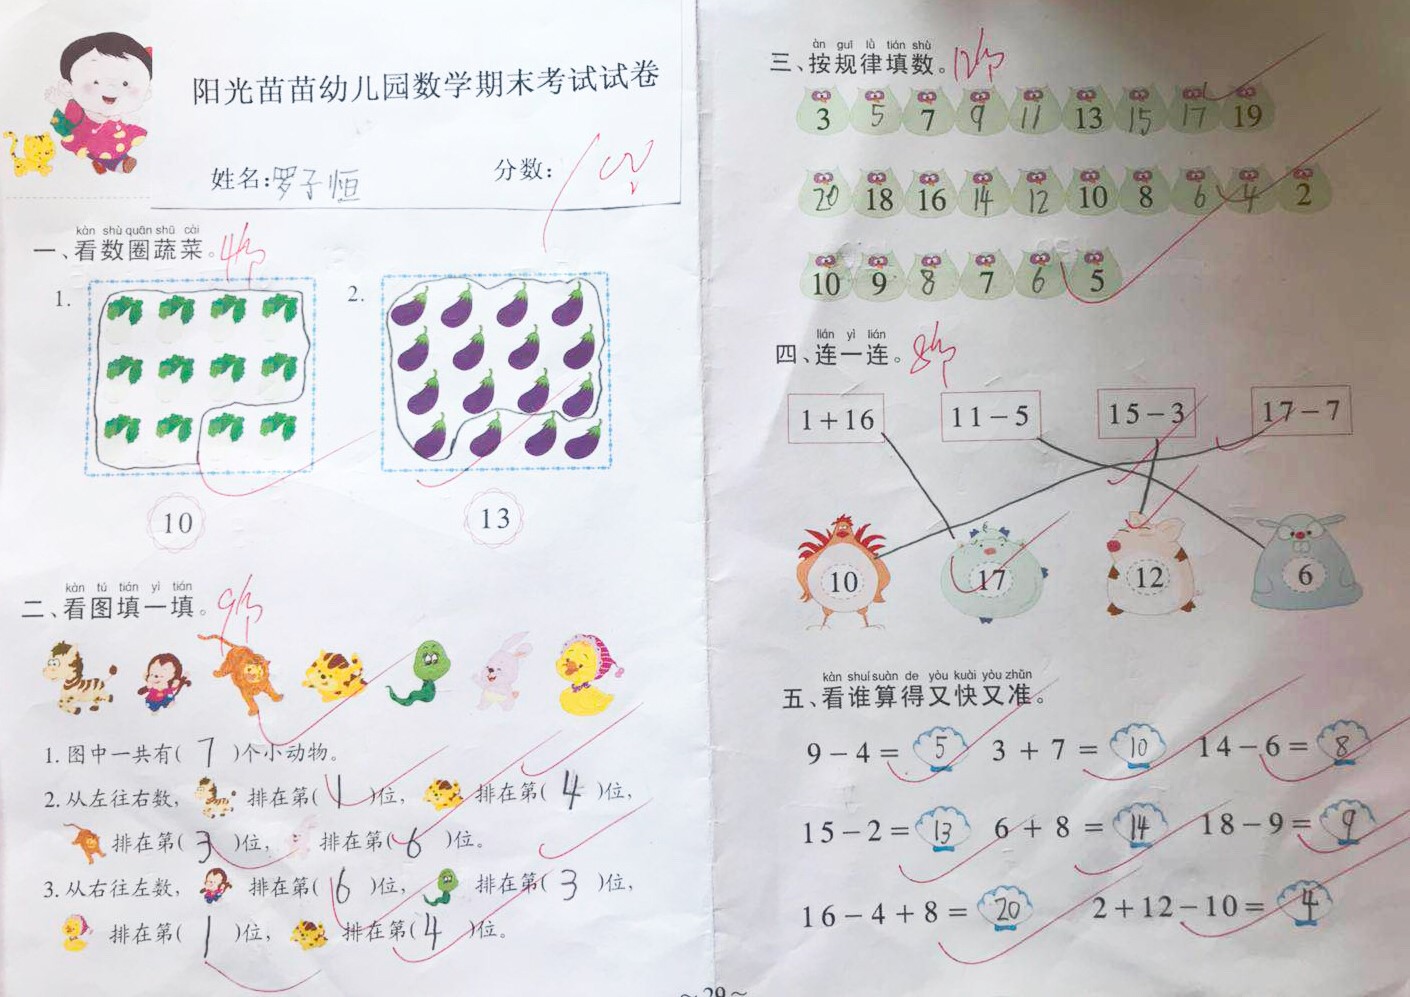 阳光苗苗幼儿园数学期末考试试卷
姓名:罗子恒 分数: 100
kàn shù quān shū cài
一、看数圈蔬菜。4分
1. 2.
10 13
kàn tú tián yì tián
二、看图填一填。9分
1.图中一共有( 7 )个小动物。
2.从左往右数, 排在第( 1 )位, 排在第( 4 )位,
排在第( 3 )位, 排在第( 6 )位。
3.从右往左数, 排在第( 6 )位, 排在第( 3 )位,
排在第( 1 )位, 排在第( 4 )位。
àn guī lǜ tián shù
三、按规律填数。12分
3 5 7 9 11 13 15 17 19
20 18 16 14 12 10 8 6 4 2
10 9 8 7 6 5
lián yì lián
四、连一连。8分
1+16 11-5 15-3 17-7
10 17 12 6
kàn shuí suàn de yòu kuài yòu zhǔn
五、看谁算得又快又准。
9-4= 5 3+7= 10 14-6= 8
15-2= 13 6+8= 14 18-9= 9
16-4+8= 20 2+12-10= 4
~29~